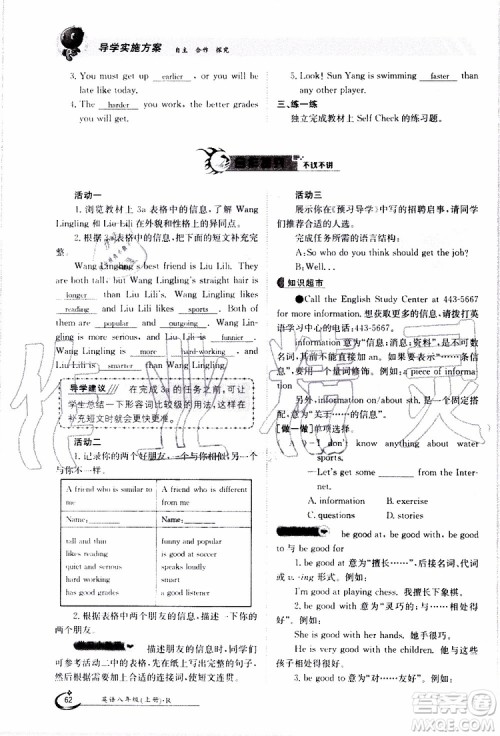 导学实施方案 自主 合作 探究
3. You must get up earlier , or you will be
late like today.
4. The harder you work, the better grades
you will get.
活动一
1. 浏览教材上 3a 表格中的信息,了解 Wang
Lingling 和 Liu Lili 在外貌和性格上的异同点。
2. 根据表格中的信息,将下面的短文补充完
整。
Wang Lingling's straight hair is
longer than Liu Lili's. Wang Lingling is
popular and outgoing than Liu Lili.
Wang Lingling is more hard-working, and
Liu Lili is smarter than Wang Lingling.
导学建议 在完成 3a 的任务之前,可让
学生总结一下形容词比较级的用法,这样在
补充短文时就会更快更准。
活动二
1. 记录你的两个好朋友,一个与你相似,一个
与你不一样。
A friend who is similar to
me
A friend who is different
from me
Name:
Name:
tall and thin
likes reading
quiet and serious
hard working
has good grades
funny and popular
is good at soccer
speaks loudly
smart
is good at listening
2. 根据表格中两个朋友的信息,描述一下你
的朋友。
描述朋友的信息时,同学们
可参考活动二中表格中的句子,然后适当添加一
些连接词,将各个短句连接成一个完整的短文。
62 英语八年级(上册)·R
5. Look! Sun Yang is swimming faster than
any other player.
三、练一练
独立完成教材上 Self Check 的练习题。
不议不讲
活动三
展示你在《预习导学》中写的招聘启事,请同学
们推荐合适的人选。
完成任务所需的语言结构:
A: So who do you think should get the job?
B: Well...
知识超市
Call the English Study Center at 443-5667.
请拨打英语学习中心的电话 443-5667。
information 意为“信息;消息;资料”,是不可数
名词,其前不能加 an。如果要表示“一条信
息”,需要用上量词修饰。例如: a
piece of information
information 后常接介词 about,
意为“关于……的信息”。
[做一做] 单项选择。
—I don't know anything about water
sports.
—Let's get some from the Inter-
net.
A. information B. exercise
C. questions D. stories
be good at, be good
to 与 be good for
1. be good at 意为“擅长……”,后接名词、代词
或 v.-ing 形式。例如:
I'm good at playing chess. 我擅长下棋。
2. be good with 意为“灵巧的;与……相处得
好”。例如:
She is good with her hands. 她手很巧。
3. be good to 意为“对……友好”。例如:
He is good to us. 他对我们很好。